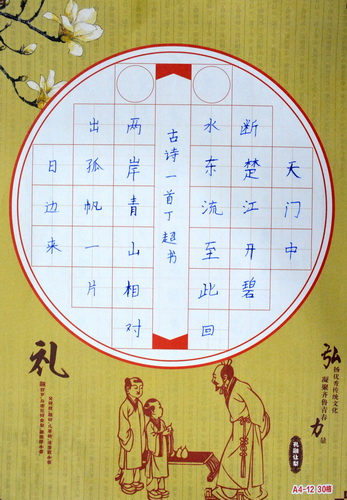 天门中
断楚江开碧
水东流至此回
古诗一首丁超书
两岸青山相对
出孤帆一片
日边来
弘扬优秀传统文化
凝聚齐鲁青春力量
孔融让梨
礼
A4-12 30格